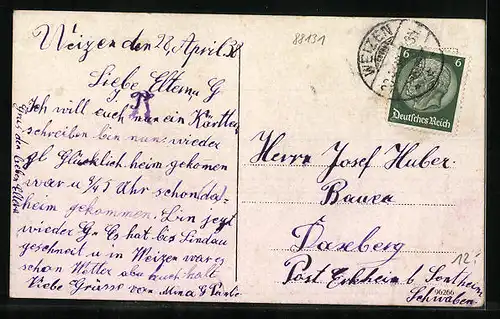 Weizen den 28 April 38
88131
Liebe Eltern u G
Ich will euch nun ein Kärtlein
schreiben bin nun wieder
Glücklich heim gekomen
war u 3/45 Uhr schon da
heim gekommen. Bin jezt
wieder G. Es hat bis Lindau
geschneit u in Weizen war es
schon Wetter aber auch kalt
Viele Grüsse von Mina
WEIZEN
6 6
Deutsches Reich
Herrn Josef Huber
Bauer
Daxberg
Post Erkheim b Sontheim
Schwaben
12.-
96266